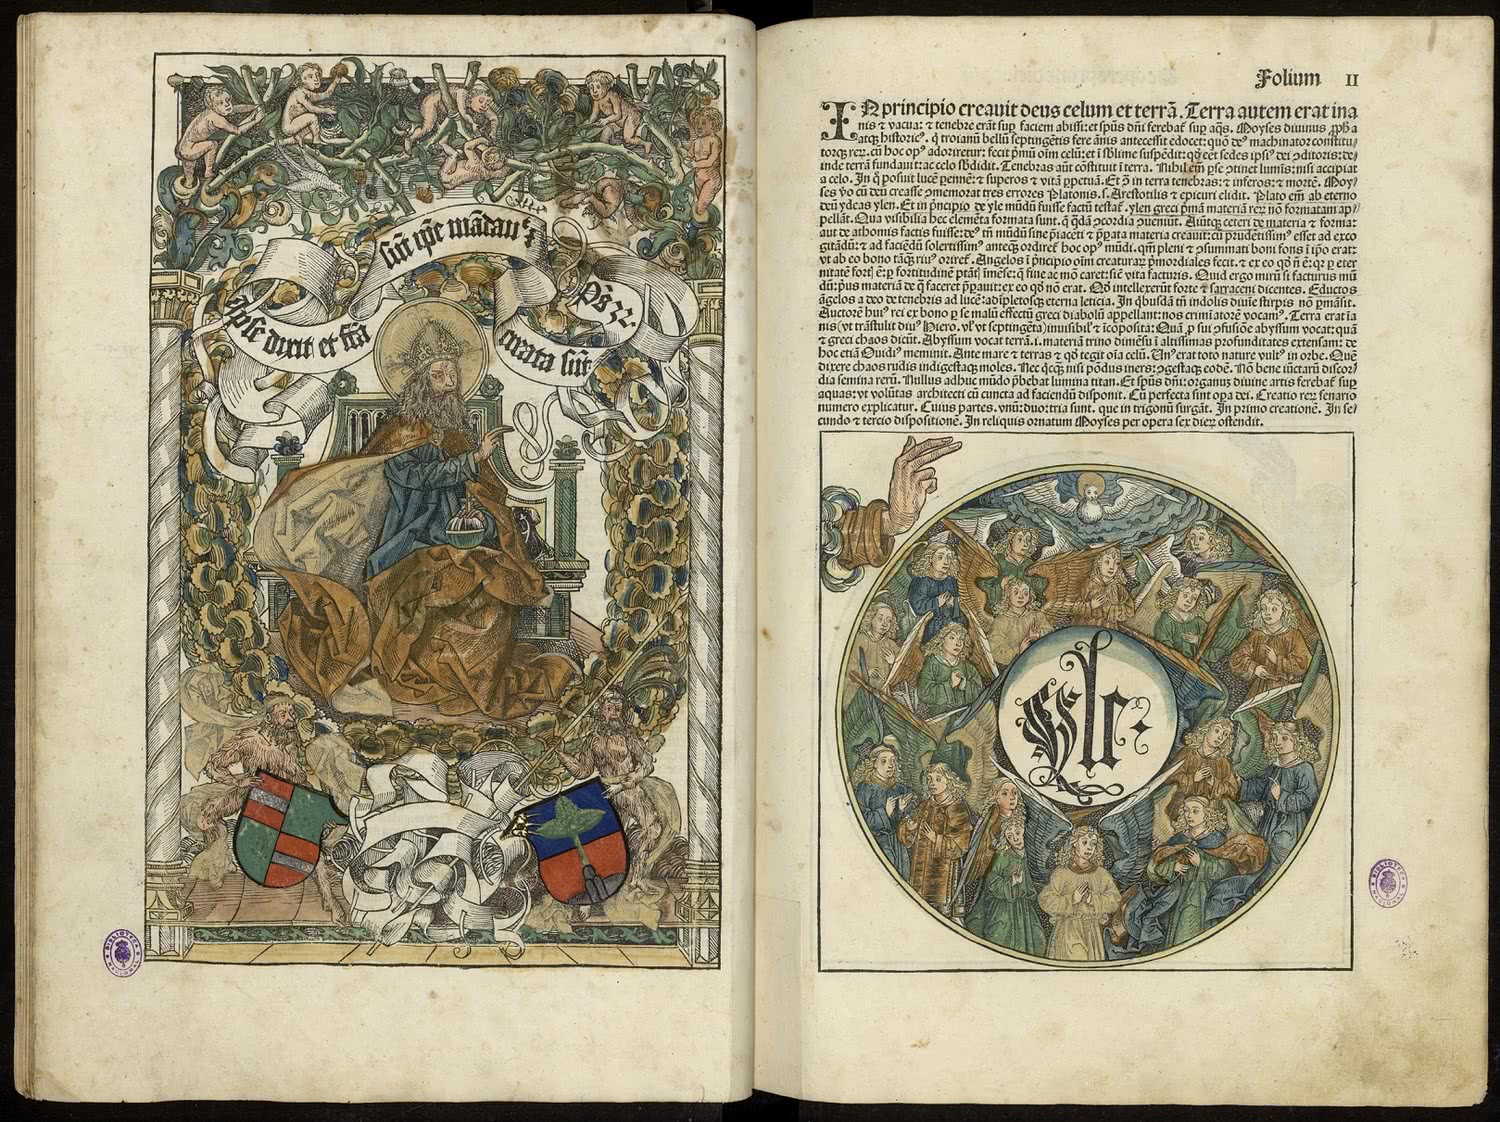 Ipse dixit et fc̄a
sūt ip̄e mādauꝫ
et creata sūt
p̄s 32.
BIBLIOTECA NACIONAL
Folium II
IN principio creavit deus celum et terrā. Terra autem erat ina
nis ⁊ vacua: ⁊ tenebre erāt suꝑ faciem abissi: et spūs dn̄i ferebaꝉ suꝑ aq̄s. Moyses divinus ꝓpħa
atqꝫ historicꝰ. q̄ troianū bellū septingētis fere ānis antecessit edocet: quō deꝰ machinator constitu⸗
torqꝫ reꝝ. cū hoc opꝰ adoriretur: fecit p̄mū oīm celū: et ī sblime suspēdit: qđ eēt sedes ipsiꝰ dei ꝯditoris: de⸗
inde terrā fundauit: ac celo sb̄didit. Tenebras aūt cōstituit ī terra. Nihil em̄ ꝑse ꝯtinet luminis: nisi accipiat
a celo. In q̄ posuit lucē ꝑennē: ⁊ superos ⁊ vitā ꝑpetuā. Et ꝯͣ in terra tenebras: ⁊ inferos: ⁊ mortē. Moy⸗
ses ꝟo cū deū creasse ꝯmemorat tres errores Platonis.s. Arestotilis ⁊ epicuri elidit. Plato em̄ ab eterno
deū ydeas ylen. Et in p̄ncipio de yle mūdū fuisse factū testaꝉ. ylen greci p̄mā materiā reꝝ nō formatam ap⸗
pellāt. Qua visibilia hec elemēta formata sunt. q̄ q̄dā ꝯcordia ꝯueniūt. Aūtqꝫ ceteri de materia ⁊ forma:
aut de athomis factis fuisse: deꝰ tn̄ mūdū sine p̄iacēti ⁊ p̄pata materia creauit: cū prudētissimꝰ esset ad exco
gitādū: ⁊ ad faciēdū solertissimꝰ anteqꝫ ordireꝉ hoc opꝰ mūdi. qm̄ pleni ⁊ ꝯsummati boni fons ī ip̄o erat:
vt ab eo bono tāqꝫ riuꝰ orireꝉ. Angelos ī p̄ncipio oīm creaturaꝝ p̄mordiales fecit. ⁊ ex eo qđ nō ē: qꝛ ꝑ eter
nitatē forꝉ ē: ꝑ fortitudinē ptāꝉ īmēse: q̄ fine ac mō caret: sič vita facturis. Quid ergo mirū si facturus mū
dū: pꝰ materiā de q̄ faceret p̄ꝑauit: ex eo qđ nō erat. Qđ intellexerūt forte ⁊ sarraceni dicentes. Eductos
āgelos a deo de tenebris ad lucē: adīpletosqꝫ eterna leticia. In qͥbusdā tn̄ indolis diuīe stirpis nō ꝑmāsit.
Auctorē huiꝰ rei ex bono ꝑ se malū effectū greci diabolū appellant: nos crimīatorē vocamꝰ. Terra erat īa
nis (vt trāstulit diuꝰ Hiero. vꝉ vt septingēta) inuisibiꝉ ⁊ īcōposita: Quā ꝓ sui ꝯfusiōe abyssum vocat: quā
⁊ greci chaos dicūt. Abyssum vocat terrā.i. materiā trino dimēsu ī altissimas profunditates extensam: de
hoc etiā Ouidiꝰ meminit. Ante mare ⁊ terras ⁊ qđ tegit oīa celū. Unꝰ erat toto nature vultꝰ in orbe. Quē
dixere chaos rudis indigestaqꝫ moles. Nec qͥcqꝫ nisi pōdus iners: ꝯgestaqꝫ eodē. Nō bene iūctarū discor⸗
dia semina rerū. Nullus adhuc mūdo p̄bebat lumina titan. Et spūs dn̄i: organuꝫ diuine artis ferebaꝉ suꝑ
aquas: vt volūtas architecti cū cuncta ad faciendū disponit. Cū perfecta sint opa dei. Creatio reꝝ senario
numero explicatur. Cuius partes. vnū: duo: tria sunt. que in trigonū surgāt. In primo creatione. In se⸗
cundo ⁊ tercio dispositione. In reliquis ornatum Moyses per opera sex dieꝝ ostendit.
BIBLIOTECA NACIONAL